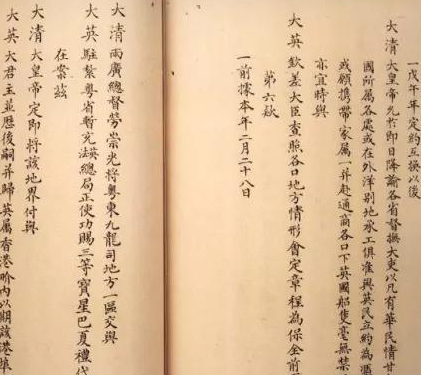 一戊午年定約互換以後
大清大皇帝允於即日降諭各省督撫大吏以凡有華民情甘
國所屬各處或在外洋別地承工俱准與英民立約為憑
或願攜帶家屬一并赴通商各口下英國船隻毫無禁
亦宜時與
大英欽差大臣查照各口地方情形會定章程為保全前
第六款
一前據本年二月二十八日
大清兩廣總督勞崇光將粵東九龍司地方一區交與
大英駐紮粵省暫充英總局正使功賜三等寶星巴夏禮代
在案茲
大清大皇帝定即將該地界付與
大英大君主並歷後嗣并歸英屬香港畍內以期該港埠